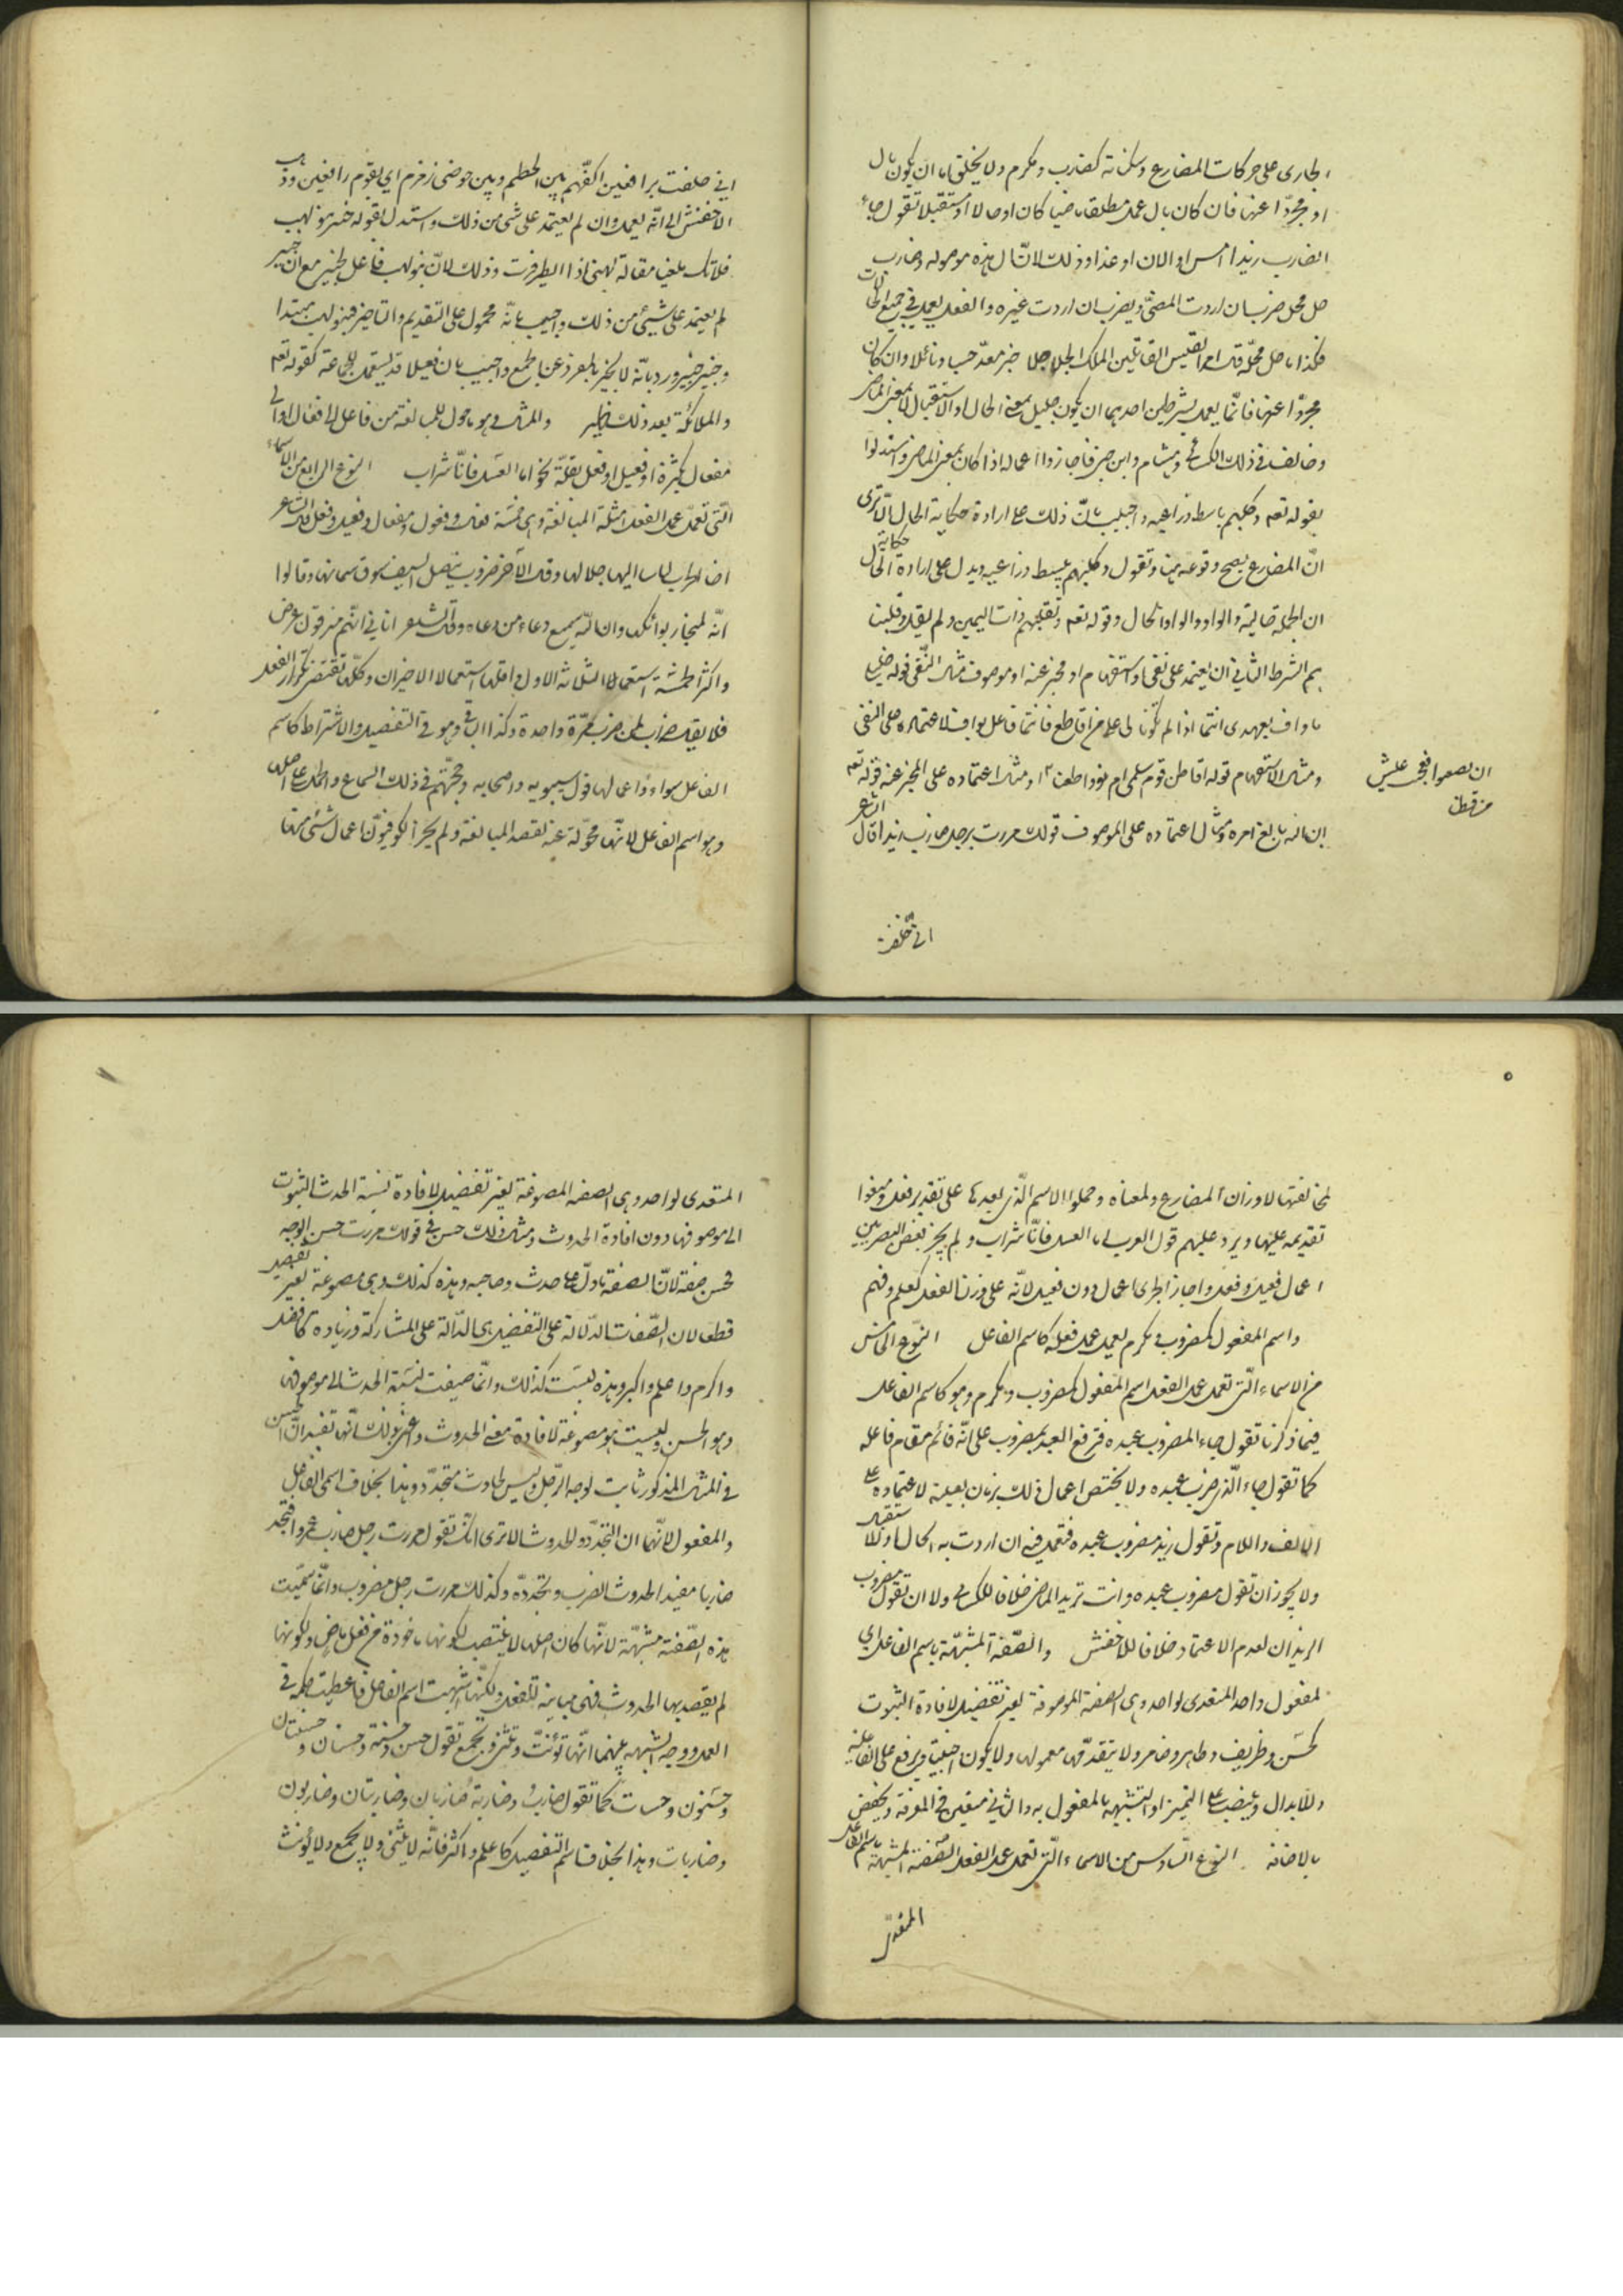 الجارى على حركات المضارع وسكناته كضارب ومكرم ولا يخلو اما ان يكون بال
او مجردا عنها فان كان بال عمل مطلقا ماضيا كان او حالا او مستقبلا تقول جاء
الضارب زيدا امس او الان او غدا وذلك لانّ ال هذه موصوله وضارب
حل محل ضرب ان اردت المضىّ ويضرب ان اردت غيره والفعل يعمل فى جميع الحالات
فكذا ما حل محلّه قال امرء القيس القاتلين الملك الحلاحلا خير معدّ حسبا ونائلا وان كان
مجردّا عنها فانّما يعمل بشرطين احدهما ان يكون بمعنى الحال او الاستقبال لا بمعنى الماضى
وخالف فى ذلك الكسائى وهشام وابن فاجازوا اعماله اذا كان بمعنى الماضى واستدلوا
بقوله تعم وكلبهم باسط ذراعيه واجيب بانّ ذلك على ارادة حكاية الحال الا ترى
انّ المضارع يصح وقوعه هنا وتقول وكلبهم يبسط ذراعيه ويدل على ارادة حكاية الحال
ان الجملة حالية والواو والواو الحال وقوله تعم ونقلبهم ذات اليمين ولم يقل وقلبنا
هم الشرط الثانى ان يعتمد على نفى او استفهام او مخبر عنه او موصوف مثال النّفى قوله خليلى
ما واف بعهدى انتما اذا لم تكونا لى على من اقاطع فانتما فاعل بواف لاعتماده على النفى
ومثال الاستفهام قوله اقاطن قوم سلمى ام نووا ظعنا ومثال اعتماده على المخبر عنه قوله تعم
ان يظعنوا فعجيب عيش
من قطنا
ان الله بالغ امره ومثال اعتماده على الموصوف قولك مررت برجل ضارب زيدا قال الشاعر
انى حلفت
انى حلفت برافعين اكفّهم بين الحطيم وبين حوضى زمزم اى بقوم رافعين وذهب
الاخفش الى انّه يعمل وان لم يعتمد على شئ من ذلك واستدل بقوله خبير بنو لهب
فلا تك ملغيا مقالة لهبى اذا الطير مرت وذلك لانّ بنو لهب فاعل بخبير مع ان خبير
لم يعتمد على شيئ من ذلك واجيب بانّه محمول على التقديم والتاخير فبنو لهب مبتدا
وخبير خبره ورد بانّه لا يخبر بالمفرد عن الجمع واجيب بان فعيلا قد يستعمل للجماعة كقوله تعم
والملائكة بعد ذلك ظهير والمثال وهو ما حول للمبالغة من فاعل الى فعّال او الى
مفعال بكثرة او فعيل او فعل بقلّة نحو اما العسل فانّا شراب النوع الرابع من الاسماء
الّتى تعمل عمل الفعل امثلة المبالغة وهى خمسة فعال وفعول ومفعال وفعيل وفعل قال الشاعر
اخا الحرب لباسا اليها جلالها وقال الآخر ضروب بنصل السيف سوق سمانها وقالوا
انّه لمنحار بوائكها وان الله سميع دعاء من دعاه وقال الشاعر اتانى انّهم مزقون عرضى
واكثر الخمسة استعمالا الثلاثة الاول واقلها استعمالا الاخيران وكلّها تقتضى تكرار الفعل
فلا يقال ضراب لمن ضرب مرّة واحدة وكذا الباقى وهو فى التفصيل والاشتراط كاسم
الفاعل سواء واعمالها قول سيبويه واصحابه وحجّتهم فى ذلك السماع والحمل على اصلها
وهو اسم الفاعل لانّها محوّلة عنه لقصد المبالغة ولم يجز الكوفيّون اعمال شئ منها
لمخالفتها لاوزان المضارع ولمعناه وحملوا الاسم الّذى بعدها على تقدير فعل ومنعوا
تقديمه عليها ويرد عليهم قول العرب اما العسل فانّا شراب ولم يجز بعض البصريين
اعمال فعيل وفعل واجاز الجرمى اعمال دون فعيل لانّه على وزن الفعل كعلم وفهم
واسم المفعول كمضروب ومكرم يعمل عمل فعله كاسم الفاعل النوع الخامس
من الاسماء الّتى تعمل عمل الفعل اسم المفعول كمضروب ومكرم وهو كاسم الفاعل
فيما ذكرنا تقول جاء المضروب عبده فترفع العبد بمضروب على انّه قائم مقام فاعله
كما تقول جاء الّذى ضرب عبده ولا يختص اعمال ذلك بزمان بعينه لاعتماده على
الالف واللام وتقول زيد مضروب عبده فتعمل فيه ان اردت به الحال او الاستقبال
ولا يجوز ان تقول مضروب عبده وانت تريد الماضى خلافا للكسائى ولا ان تقول مضروب
الزيدان لعدم الاعتماد خلافا للاخفش والصّفة المشبهّة باسم الفاعل اى
لمفعول واحد المتعدى لواحد وهى الصفة الموصوفة لغير تفضيل لافادة الثبوت
كحسن وظريف وطاهر وضامر ولا يتقدّمها معمولها ولا يكون اجنبيّا ويرفع على الفاعليه
وللابدال وينصب على التميز او التشبيه بالمفعول به والثانى متعين فى المعرفة ويخفض
بالاضافه النوع السّادس من الاسماء الّتى تعمل عمل الفعل الصّفة المشبهة باسم الفاعل
المتعدى
المتعدى لواحد وهى الصفه المصوغة لغير تفضيل لافادة نسبة الحدث الثبوت
الى موصوفها دون افادة الحدوث ومثال ذلك حسن فى قولك مررت حسن الوجه
فحسن صفة لانّ الصفة ما دلّ على حدث وصاحبه وهذه كذلك وهى مصوغة لغير تفضيل
قطعا لان الصّفات الدّالة على التفضيل هى الدّالة على المشاركة وزيادة كافضل
واكرم واعلم واكبر وهذه ليست كذلك وانّما صيغت لنسبة الحدث الى موصوفها
وهو الحسن وليست هو مصوغة لافادة معنى الحدوث واعنى بذلك انّها تفيد انّ الحسن
فى المثال المذكور ثابت لوجه الرّجل وليس بحادث متجدّد وهذا بخلاف اسمى الفاعل
والمفعول لانّهما ان التجدّد والحدوث الا ترى انّك تقول مررت رجل ضارب عمروا فتجد
ضاربا مفيد الحدوث الضرب وتجدده وكذلك مررت رجل مضروب وانّما سمّيت
هذه الصّفة مشبهّة لانّها كان اصلها لا ينصب لكونها ماخوذة من فعل ماض ولكونها
لم يقصد بها الحدوث فهى مباينة للفعل ولكنّها اشبهت اسم الفاعل فاعطيت حكمه فى
العمل ووجه الشبه بينهما انّها تؤنّث وتثنى وتجمع تقول حسن وحسنة وحسنان وحسنتان
وحسنون وحسنات كما تقول ضارب وضاربة ضاربان وضاربتان وضاربون
وضاربات وهذا بخلاف اسم التفضيل كاعلم واكثر فانّه لا يثنى ولا يجمع ولا يؤنث